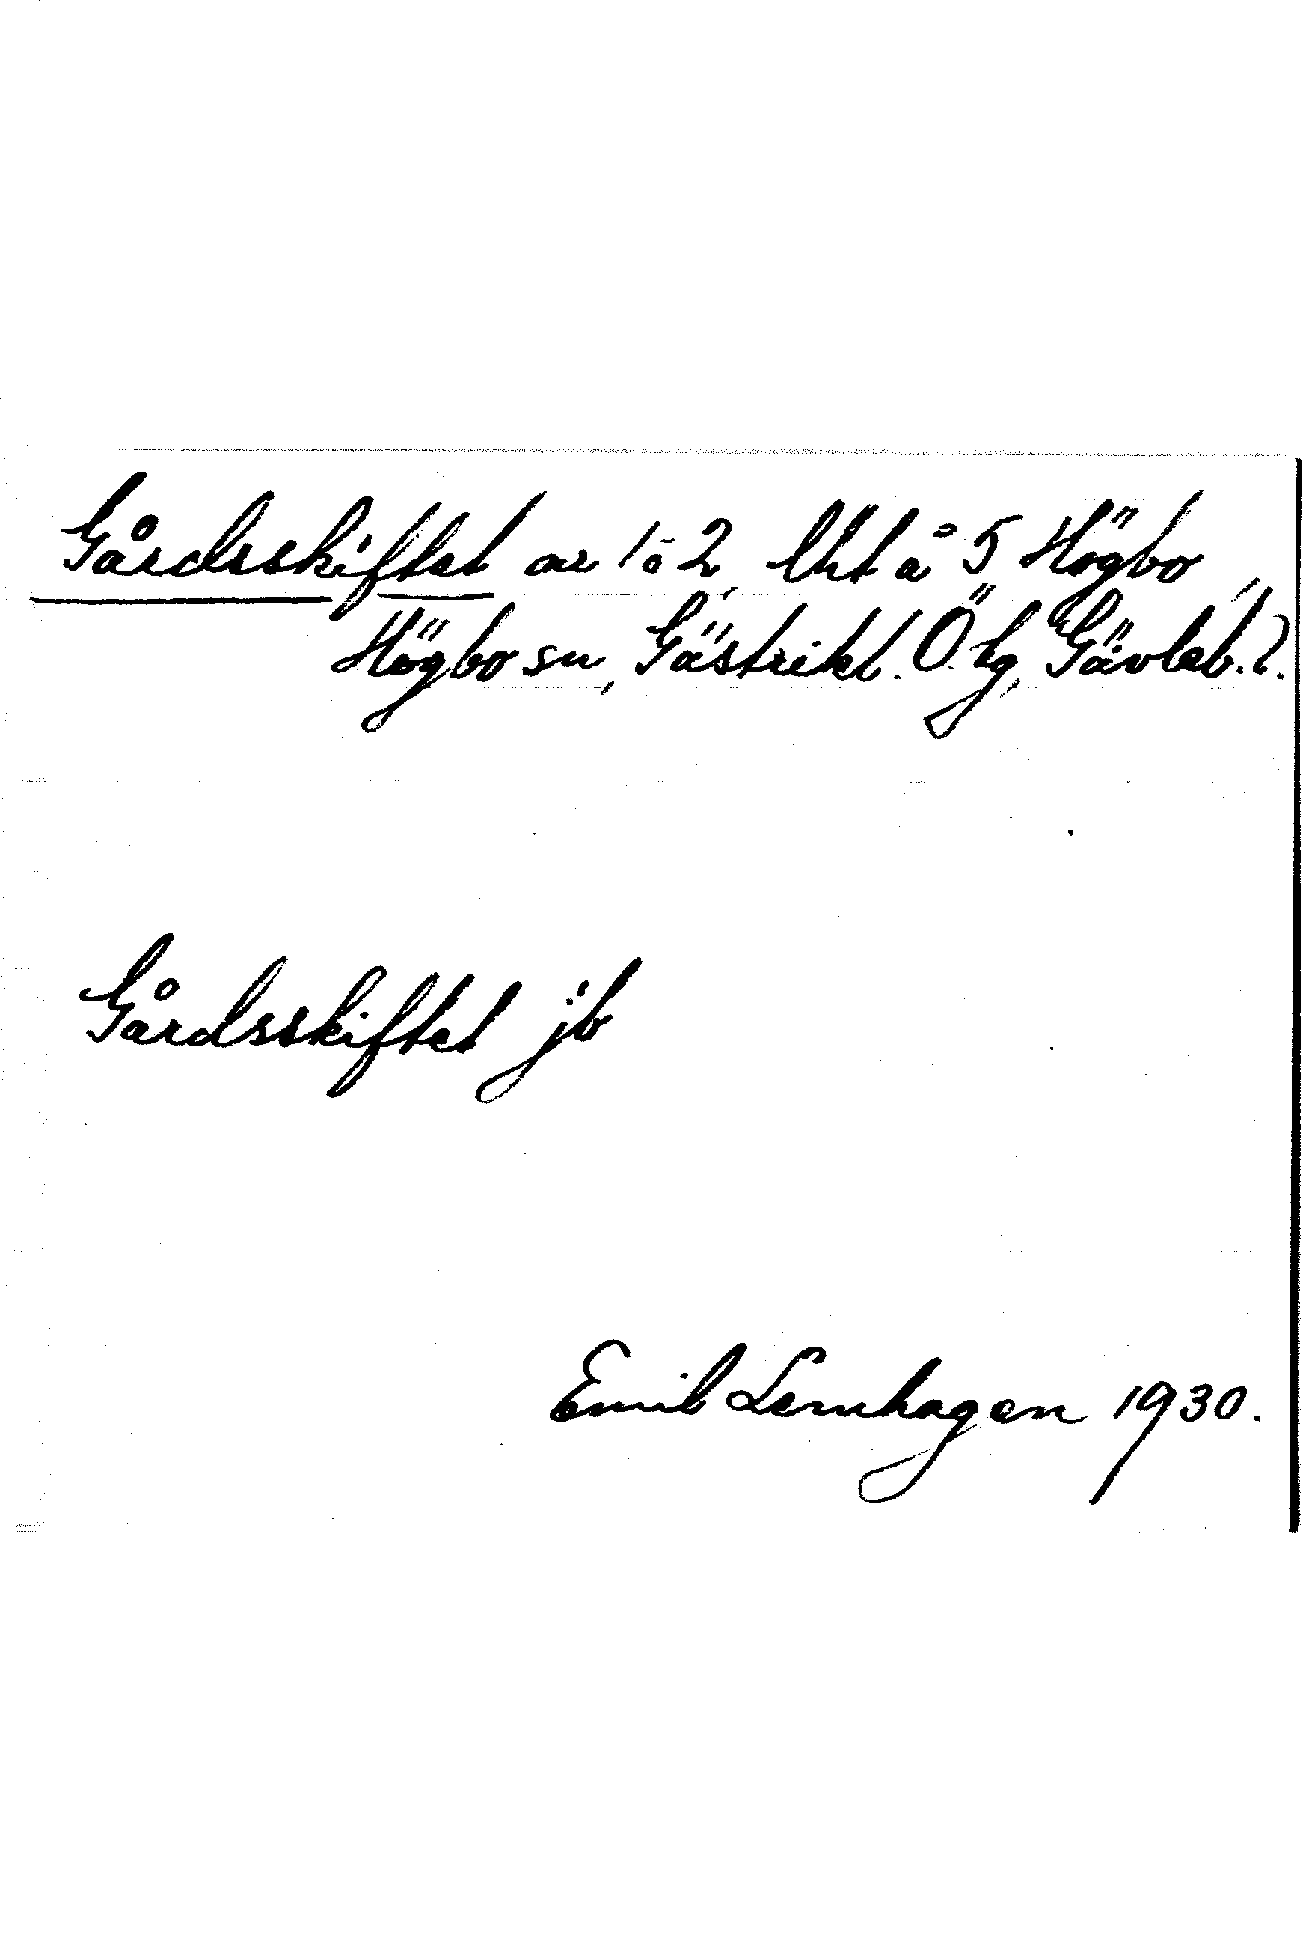 Gårdsskiftet av 1 o 2, Utt å 5 Högbo,
Högbo sn, Gästrikl. Ö tg, Gävleb. l.
Gårdsskiftet jb
Emil Lernhagen 1930.